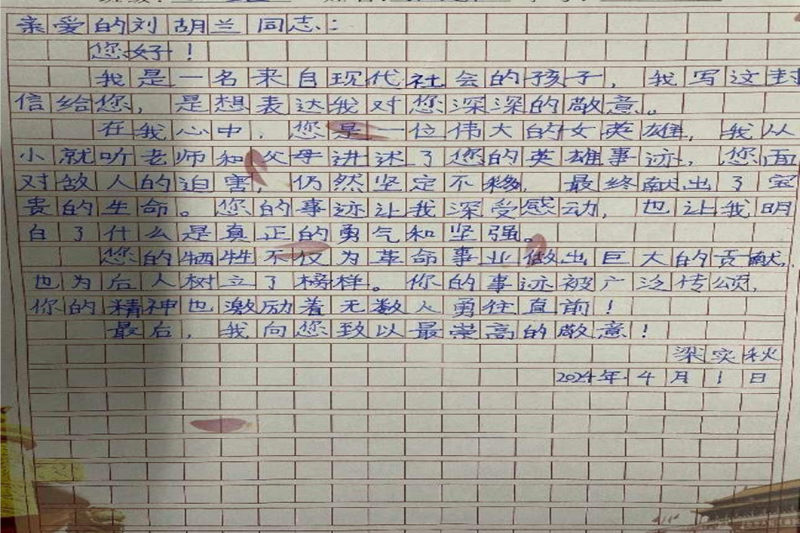 亲爱的刘胡兰同志:
您好!
我是一名来自现代社会的孩子,我写这封
信给您,是想表达我对您深深的敬意。
在我心中,您是一位伟大的女英雄,我从
小就听老师和父母讲述了您的英雄事迹,您面
对敌人的迫害,仍然坚定不移,最终献出了宝
贵的生命。您的事迹让我深受感动,也让我明
白了什么是真正的勇气和坚强。
您的牺牲不仅为革命事业做出巨大的贡献,
也为后人树立了榜样。你的事迹被广泛传颂,
你的精神也激励着无数人勇往直前!
最后,我向您致以最崇高的敬意!
梁实秋
2024年4月1日